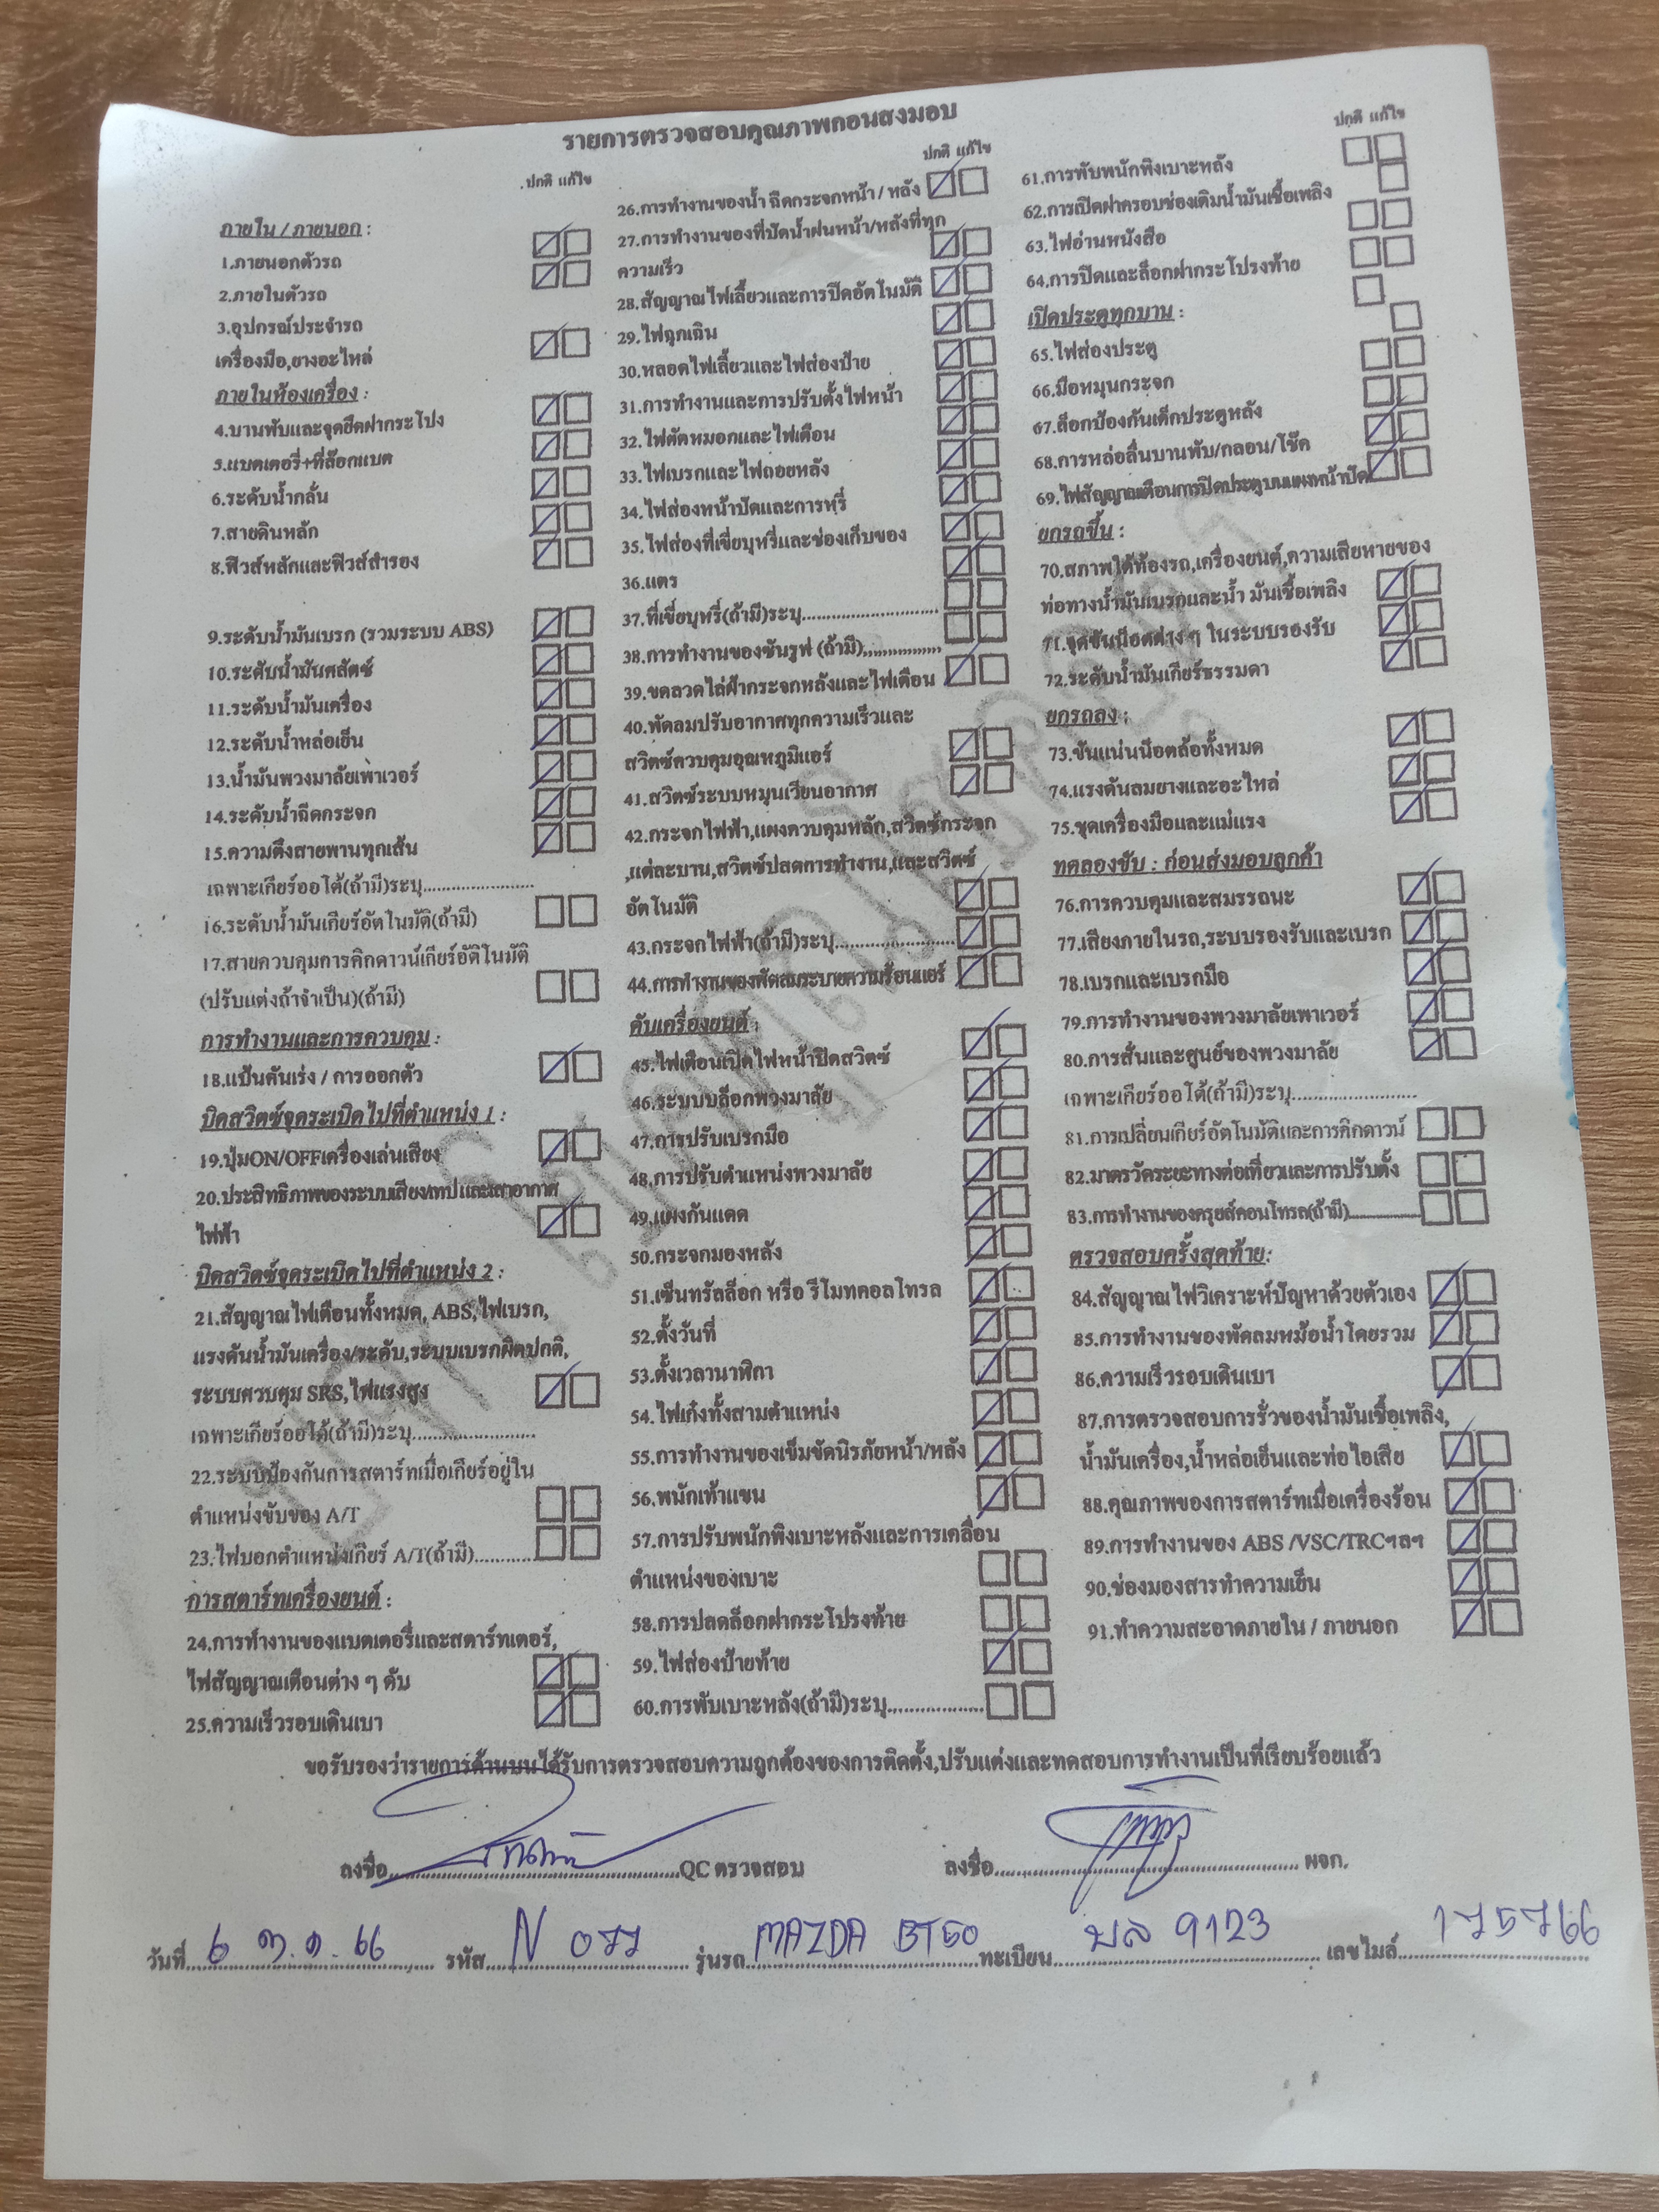 รายการตรวจสอบคุณภาพก่อนส่งมอบ
ปกติ แก้ไข
ภายใน / ภายนอก :
1.ภายนอกตัวรถ
2.ภายในตัวรถ
3.อุปกรณ์ประจำรถ
เครื่องมือ,ยางอะไหล่
ภายในห้องเครื่อง :
4.บานพับและจุดยึดฝากระโปง
5.แบตเตอรี่+ที่ล๊อกแบต
6.ระดับน้ำกลั่น
7.สายดินหลัก
8.ฟิวส์หลักและฟิวส์สำรอง
9.ระดับน้ำมันเบรก (รวมระบบ ABS)
10.ระดับน้ำมันคลัตช์
11.ระดับน้ำมันเครื่อง
12.ระดับน้ำหล่อเย็น
13.น้ำมันพวงมาลัยเพาเวอร์
14.ระดับน้ำฉีดกระจก
15.ความตึงสายพานทุกเส้น
เฉพาะเกียร์ออโต้(ถ้ามี)ระบุ.......................
16.ระดับน้ำมันเกียร์อัตโนมัติ(ถ้ามี)
17.สายควบคุมการคิกดาวน์เกียร์อัติโนมัติ
(ปรับแต่งถ้าจำเป็น)(ถ้ามี)
การทำงานและการควบคุม :
18.แป้นคันเร่ง / การออกตัว
บิดสวิตซ์จุดระเบิดไปที่ตำแหน่ง 1 :
19.ปุ่มON/OFFเครื่องเล่นเสียง
20.ประสิทธิภาพของระบบเสียง/เทปและเสาอากาศ
ไฟฟ้า
บิดสวิตซ์จุดระเบิดไปที่ตำแหน่ง 2 :
21.สัญญาณไฟเตือนทั้งหมด, ABS,ไฟเบรก,
แรงดันน้ำมันเครื่อง/ระดับ,ระบบเบรกผิดปกติ,
ระบบควบคุม SRS,ไฟแรงสูง
เฉพาะเกียร์ออโต้(ถ้ามี)ระบุ.........................
22.ระบบป้องกันการสตาร์ทเมื่อเกียร์อยู่ใน
ตำแหน่งขับของ A/T
23.ไฟบอกตำแหน่งเกียร์ A/T(ถ้ามี)............
การสตาร์ทเครื่องยนต์ :
24.การทำงานของแบตเตอรี่และสตาร์ทเตอร์,
ไฟสัญญาณเตือนต่าง ๆ ดับ
25.ความเร็วรอบเดินเบา
ปกติ แก้ไข
26.การทำงานของน้ำ ฉีดกระจกหน้า / หลัง
27.การทำงานของที่ปัดน้ำฝนหน้า/หลังที่ทุก
ความเร็ว
28.สัญญาณไฟเลี้ยวและการปิดอัตโนมัติ
29.ไฟฉุกเฉิน
30.หลอดไฟเลี้ยวและไฟส่องป้าย
31.การทำงานและการปรับตั้งไฟหน้า
32.ไฟตัดหมอกและไฟเตือน
33.ไฟเบรกและไฟถอยหลัง
34.ไฟส่องหน้าปัดและการหรี่
35.ไฟส่องที่เขี่ยบุหรี่และช่องเก็บของ
36.แตร
37.ที่เขี่ยบุหรี่(ถ้ามี)ระบุ............................
38.การทำงานของซันรูฟ (ถ้ามี)................
39.ขดลวดไล่ฝ้ากระจกหลังและไฟเตือน
40.พัดลมปรับอากาศทุกความเร็วและ
สวิตซ์ควบคุมอุณหภูมิแอร์
41.สวิตซ์ระบบหมุนเวียนอากาศ
42.กระจกไฟฟ้า,แผงควบคุมหลัก,สวิตซ์กระจก
,แต่ละบาน,สวิตซ์ปลดการทำงาน,และสวิตซ์
อัตโนมัติ
43.กระจกไฟฟ้า(ถ้ามี)ระบุ.........................
44.การทำงานของพัดลมระบายความร้อนแอร์
ดับเครื่องยนต์ :
45.ไฟเตือนเปิดไฟหน้าปิดสวิตซ์
46.ระบบบล๊อกพวงมาลัย
47.การปรับเบรกมือ
48.การปรับตำแหน่งพวงมาลัย
49.แผงกันแดด
50.กระจกมองหลัง
51.เซ็นทรัลล็อก หรือ รีโมทคอลโทรล
52.ตั้งวันที่
53.ตั้งเวลานาฬิกา
54.ไฟเก๋งทั้งสามตำแหน่ง
55.การทำงานของเข็มขัดนิรภัยหน้า/หลัง
56.พนักเท้าแขน
57.การปรับพนักพิงเบาะหลังและการเคลื่อน
ตำแหน่งของเบาะ
58.การปลดล็อกฝากระโปรงท้าย
59.ไฟส่องป้ายท้าย
60.การพับเบาะหลัง(ถ้ามี)ระบุ....................
ปกติ แก้ไข
61.การพับพนักพิงเบาะหลัง
62.การเปิดฝาครอบช่องเติมน้ำมันเชื้อเพลิง
63.ไฟอ่านหนังสือ
64.การปิดและล็อกฝากระโปรงท้าย
เปิดประตูทุกบาน :
65.ไฟส่องประตู
66.มือหมุนกระจก
67.ล็อกป้องกันเด็กประตูหลัง
68.การหล่อลื่นบานพับ/กลอน/โช๊ค
69.ไฟสัญญาณเตือนการปิดประตูบนแผงหน้าปัด
ยกรถขึ้น :
70.สภาพใต้ท้องรถ,เครื่องยนต์,ความเสียหายของ
ท่อทางน้ำมันเบรกและน้ำ มันเชื้อเพลิง
71.จุดขันน็อตต่าง ๆ ในระบบรองรับ
72.ระดับน้ำมันเกียร์ธรรมดา
ยกรถลง :
73.ขันแน่นน็อตล้อทั้งหมด
74.แรงดันลมยางและอะไหล่
75.ชุดเครื่องมือและแม่แรง
ทดลองขับ : ก่อนส่งมอบลูกค้า
76.การควบคุมและสมรรถนะ
77.เสียงภายในรถ,ระบบรองรับและเบรก
78.เบรกและเบรกมือ
79.การทำงานของพวงมาลัยเพาเวอร์
80.การสั่นและศูนย์ของพวงมาลัย
เฉพาะเกียร์ออโต้(ถ้ามี)ระบุ.......................
81.การเปลี่ยนเกียร์อัตโนมัติและการคิกดาวน์
82.มาตรวัดระยะทางต่อเที่ยวและการปรับตั้ง
83.การทำงานของครุยส์คอนโทรล(ถ้ามี)................
ตรวจสอบครั้งสุดท้าย:
84.สัญญาณไฟวิเคราะห์ปัญหาด้วยตัวเอง
85.การทำงานของพัดลมหม้อน้ำโดยรวม
86.ความเร็วรอบเดินเบา
87.การตรวจสอบการรั่วของน้ำมันเชื้อเพลิง,
น้ำมันเครื่อง,น้ำหล่อเย็นและท่อไอเสีย
88.คุณภาพของการสตาร์ทเมื่อเครื่องร้อน
89.การทำงานของ ABS /VSC/TRCฯลฯ
90.ช่องมองสารทำความเย็น
91.ทำความสะอาดภายใน / ภายนอก
ขอรับรองว่ารายการด้านบนได้รับการตรวจสอบความถูกต้องของการติดตั้ง,ปรับแต่งและทดสอบการทำงานเป็นที่เรียบร้อยแล้ว
ลงชื่อ..........QC ตรวจสอบ ลงชื่อ.......... ผจก.
วันที่ 6 ต.ค. 66 รหัส N 077 รุ่นรถ MAZDA BT50 ทะเบียน บล 9123 เลขไมล์ 175766